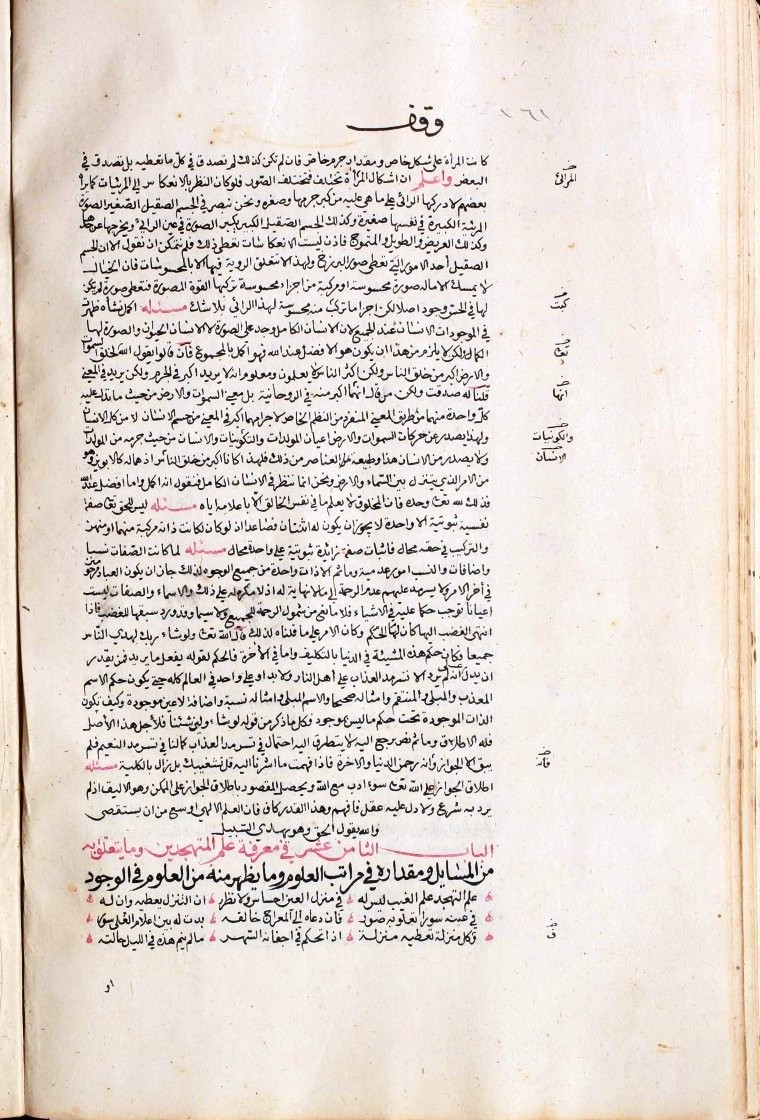 وقف
١٦١
كانت المرأة على شكل خاص ومقدار جرم خاص فان لم تكن كذلك لم تصدق في كل ما تعطيه بل تصدق في
البعض واعلم ان اشكال المرأة تختلف فتختلف الصور فلو كان النظر بالانعكاس الى المرئيات كما يراه
بعضهم لادركها الرائي على ما هي عليه من كبر جرمها وصغره ونحن نبصر في الجسم الصقيل الصغير الصورة
المرئية الكبيرة في نفسها صغيرة وكذلك الجسم الصقيل الكبير يكبر الصورة في عين الرائي ويخرجها عن حدها
وكذلك العريض والطويل والمتموج فاذن ليست الانعكاسات تعطي ذلك فلم نتمكن ان نقول الا ان الجسم
الصقيل أحد الامور التي تعطي صور البرزخ ولهذا لا تتعلق الروية فيها الا بالمحسوسات فان الخيال
لا يمسك الا ما له صورة محسوسة او مركبة من اجزاء محسوسة تركبها القوة المصورة فتعطي صورة لم يكن
لها في الحس وجود اصلا لكن اجزا ما تركبت منه محسوسة لهذا الرائي بلا شك مسئلة اكمل نشأة ظهرت
في الموجودات الانسان عند الجميع لان الانسان الكامل وجد على الصورة لا الانسان الحيوان والصورة لها
الكمال ولكن لا يلزم من هذا ان يكون هو الافضل عند الله فهو اكمل بالمجموع فان قالوا يقول الله لخلق السموات
والارض اكبر من خلق الناس ولكن اكثر الناس لا يعلمون ومعلوم انه لا يريد اكبر في الجرم ولكن يريد في المعنى
قلنا له صدقت ولكن من قال انهما اكبر منه في الروحانية بل معنى السموات والارض من حيث ما تدل عليه
كل واحدة منهما من طريق المعنى المنفرد من النظم الخاص لاجرامهما اكبر في المعنى من جسم الانسان لا من كل الانسان
ولهذا يصدر عن حركات السموات والارض اعيان المولدات والتكوينات والانسان من حيث جرمه من المولدات
ولا يصدر من الانسان هذا وطبيعة العناصر من ذلك فلهذا كانا اكبر من خلق الناس اذ هما له كالابوين وهو
من الامر الذي يتنزل بين السماء والارض ونحن انما ننظر في الانسان الكامل فنقول انه اكمل واما افضل عند الله
فذلك لله تعالى وحده فان المخلوق لا يعلم ما في نفس الخالق الا باعلامه اياه مسئلة ليس للحق تعالى صفة
نفسية ثبوتية الا واحدة لا يجوز ان يكون له اثنتان فصاعدا اذ لو كان لكانت ذاته مركبة منهما او منهن
والتركيب في حقه محال فاثبات صفة زائدة ثبوتية على واحدة محال مسئلة لما كانت الصفات نسبا
واضافات والنسب امور عدمية وما ثم الا ذات واحدة من جميع الوجوه لذلك جاز ان يكون العباد مرحومين
في آخر الامر ولا يسرمد عليهم عدم الرحمة الى ما لا نهاية له اذ لا مكره له على ذلك والاسماء والصفات ليست
اعيانا توجب حكما عليه في الاشياء فلا مانع من شمول الرحمة للجميع ولا سيما وقد ورد سبقها للغضب فاذا
انتهى الغضب اليها كان لها الحكم وكان الامر على ما قلناه لذلك قال الله تعالى ولو شاء ربك لهدى الناس
جميعا فكان حكم هذه المشيئة في الدنيا بالتكليف واما في الآخرة فالحكم لقوله يفعل ما يريد فمن يقدر
ان يدل على انه لم يرد الا تسرمد العذاب على أهل النار ولابد او على واحد في العالم كله حتى يكون حكم الاسم
المعذب والمبلى والمنتقم وامثاله صحيحا والاسم المبلى وامثاله نسبة واضافة لا عين موجودة وكيف تكون
الذات الموجودة تحت حكم ما ليس بموجود فكل ما ذكر من قوله لو شاء ولئن شئنا فلأجل هذا الأصل
فله الاطلاق وما ثم نص يرجع اليه لا يتطرق اليه احتمال في تسرمد العذاب كما لنا في تسرمد النعيم فلم
يبق الا الجواز وانه رحمن الدنيا والاخرة فاذا فهمت ما اشرنا اليه قل تشغيبك بل زال بالكلية مسئلة
اطلاق الجواز على الله تعالى سوء ادب مع الله ويحصل المقصود باطلاق الجواز على الممكن وهو الاليق اذ لم
يرد به شرع ولا دل عليه عقل فافهم وهذا القدر كاف فان العلم الالهي اوسع من ان يستقصى
والله يقول الحق وهو يهدي السبيل
الباب الثامن عشر في معرفة علم المتهجدين وما يتعلق به
من المسايل ومقداره في مراتب العلوم وما يظهر منه من العلوم في الوجود
علم التهجد علم الغيب ليس له في منزل العين احساس ولا نظر ان التنزل يعطيه وان له
في عينه سورا تعلو به صور فان دعاه الى المعراج خالقه بدت له بين اعلام العلى سور
فكل منزلة تعطيه منزلة اذا تحكم في اجفانه السهر ما لم ينم هذه في الليل حالته
او
المرائي
كبت
تعالى
انها
والكونيات
الانسان
فانه
ف